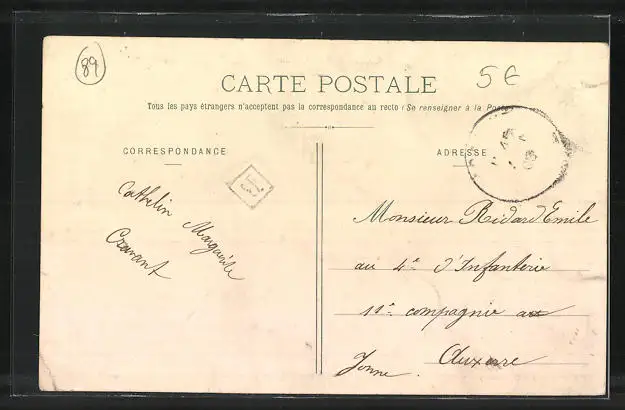 89
5€
CARTE POSTALE
Tous les pays étrangers n'acceptent pas la correspondance au recto (Se renseigner à la Poste)
CORRESPONDANCE
ADRESSE
Cathelin Marguerite
Cravant
Monsieur Ridard Emile
au 4e d'Infanterie
11e compagnie
Auxerre
Yonne.